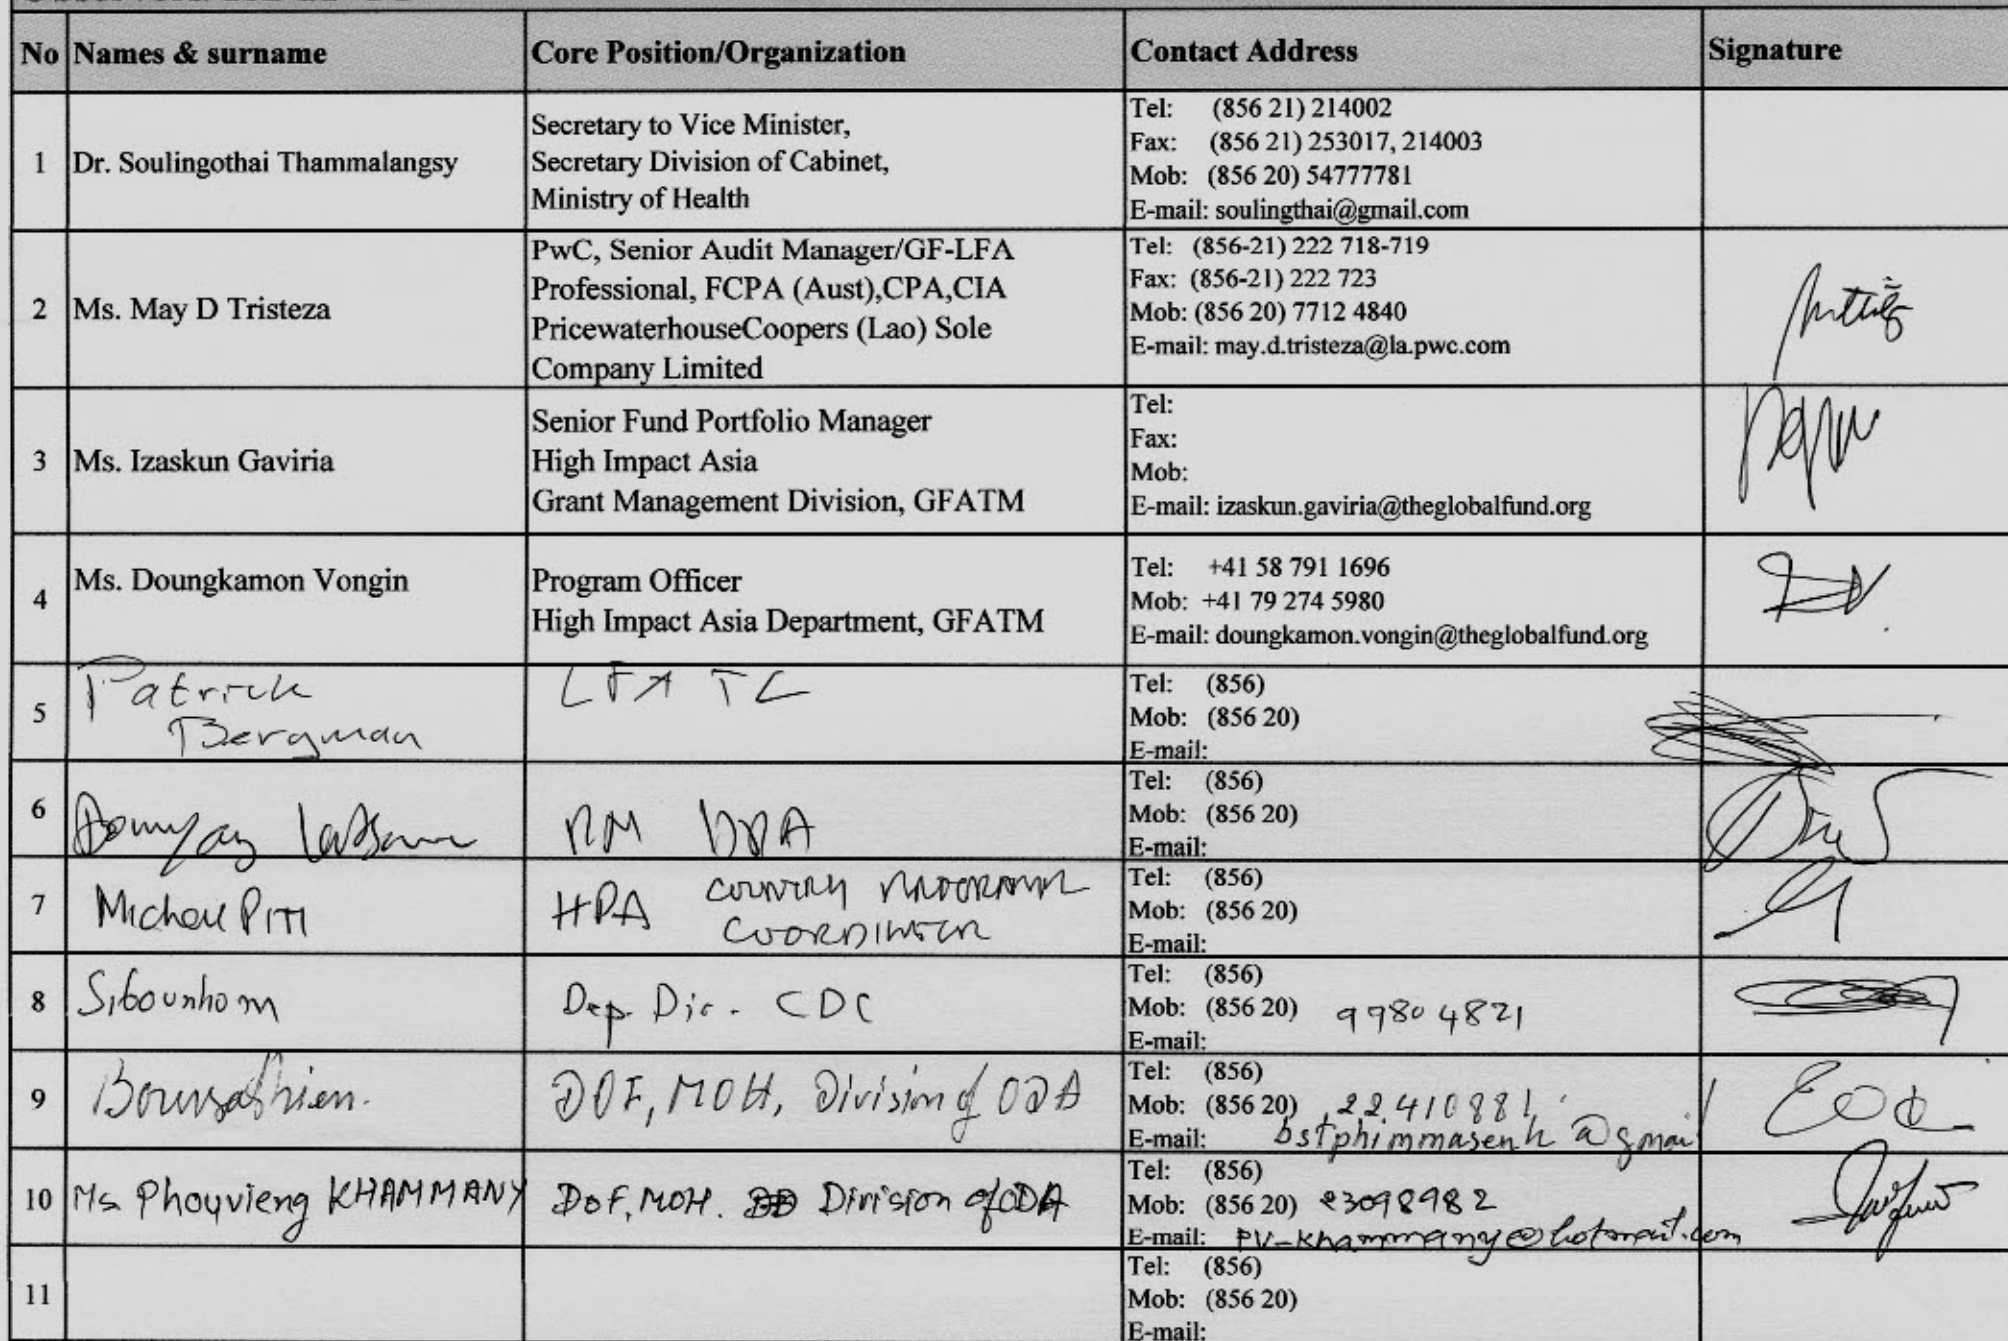 No Names & surname Core Position/Organization Contact Address Signature
1 Dr. Soulingothai Thammalangsy
Secretary to Vice Minister,
Secretary Division of Cabinet,
Ministry of Health
Tel: (856 21) 214002
Fax: (856 21) 253017, 214003
Mob: (856 20) 54777781
E-mail: soulingthai@gmail.com
2 Ms. May D Tristeza
PwC, Senior Audit Manager/GF-LFA
Professional, FCPA (Aust),CPA,CIA
PricewaterhouseCoopers (Lao) Sole
Company Limited
Tel: (856-21) 222 718-719
Fax: (856-21) 222 723
Mob: (856 20) 7712 4840
E-mail: may.d.tristeza@la.pwc.com
3 Ms. Izaskun Gaviria
Senior Fund Portfolio Manager
High Impact Asia
Grant Management Division, GFATM
Tel:
Fax:
Mob:
E-mail: izaskun.gaviria@theglobalfund.org
4 Ms. Doungkamon Vongin
Program Officer
High Impact Asia Department, GFATM
Tel: +41 58 791 1696
Mob: +41 79 274 5980
E-mail: doungkamon.vongin@theglobalfund.org
5 Patrick
Bergman
LFA TL
Tel: (856)
Mob: (856 20)
E-mail:
6
Tel: (856)
Mob: (856 20)
E-mail:
7 HPA COUNTRY PROGRAMME
COORDINATOR
Tel: (856)
Mob: (856 20)
E-mail:
8 Sibounhom
Dep. Dir. CDC
Tel: (856)
Mob: (856 20) 99804821
E-mail:
9
DOF, MOH, Division of ODA
Tel: (856)
Mob: (856 20) 22410881
E-mail: bstphimmasenh@gmail
10 Ms Phouvieng KHAMMANY
DoF, MOH. Division of ODA
Tel: (856)
Mob: (856 20) 23098982
E-mail: pv-khammany@hotmail.com
11
Tel: (856)
Mob: (856 20)
E-mail: